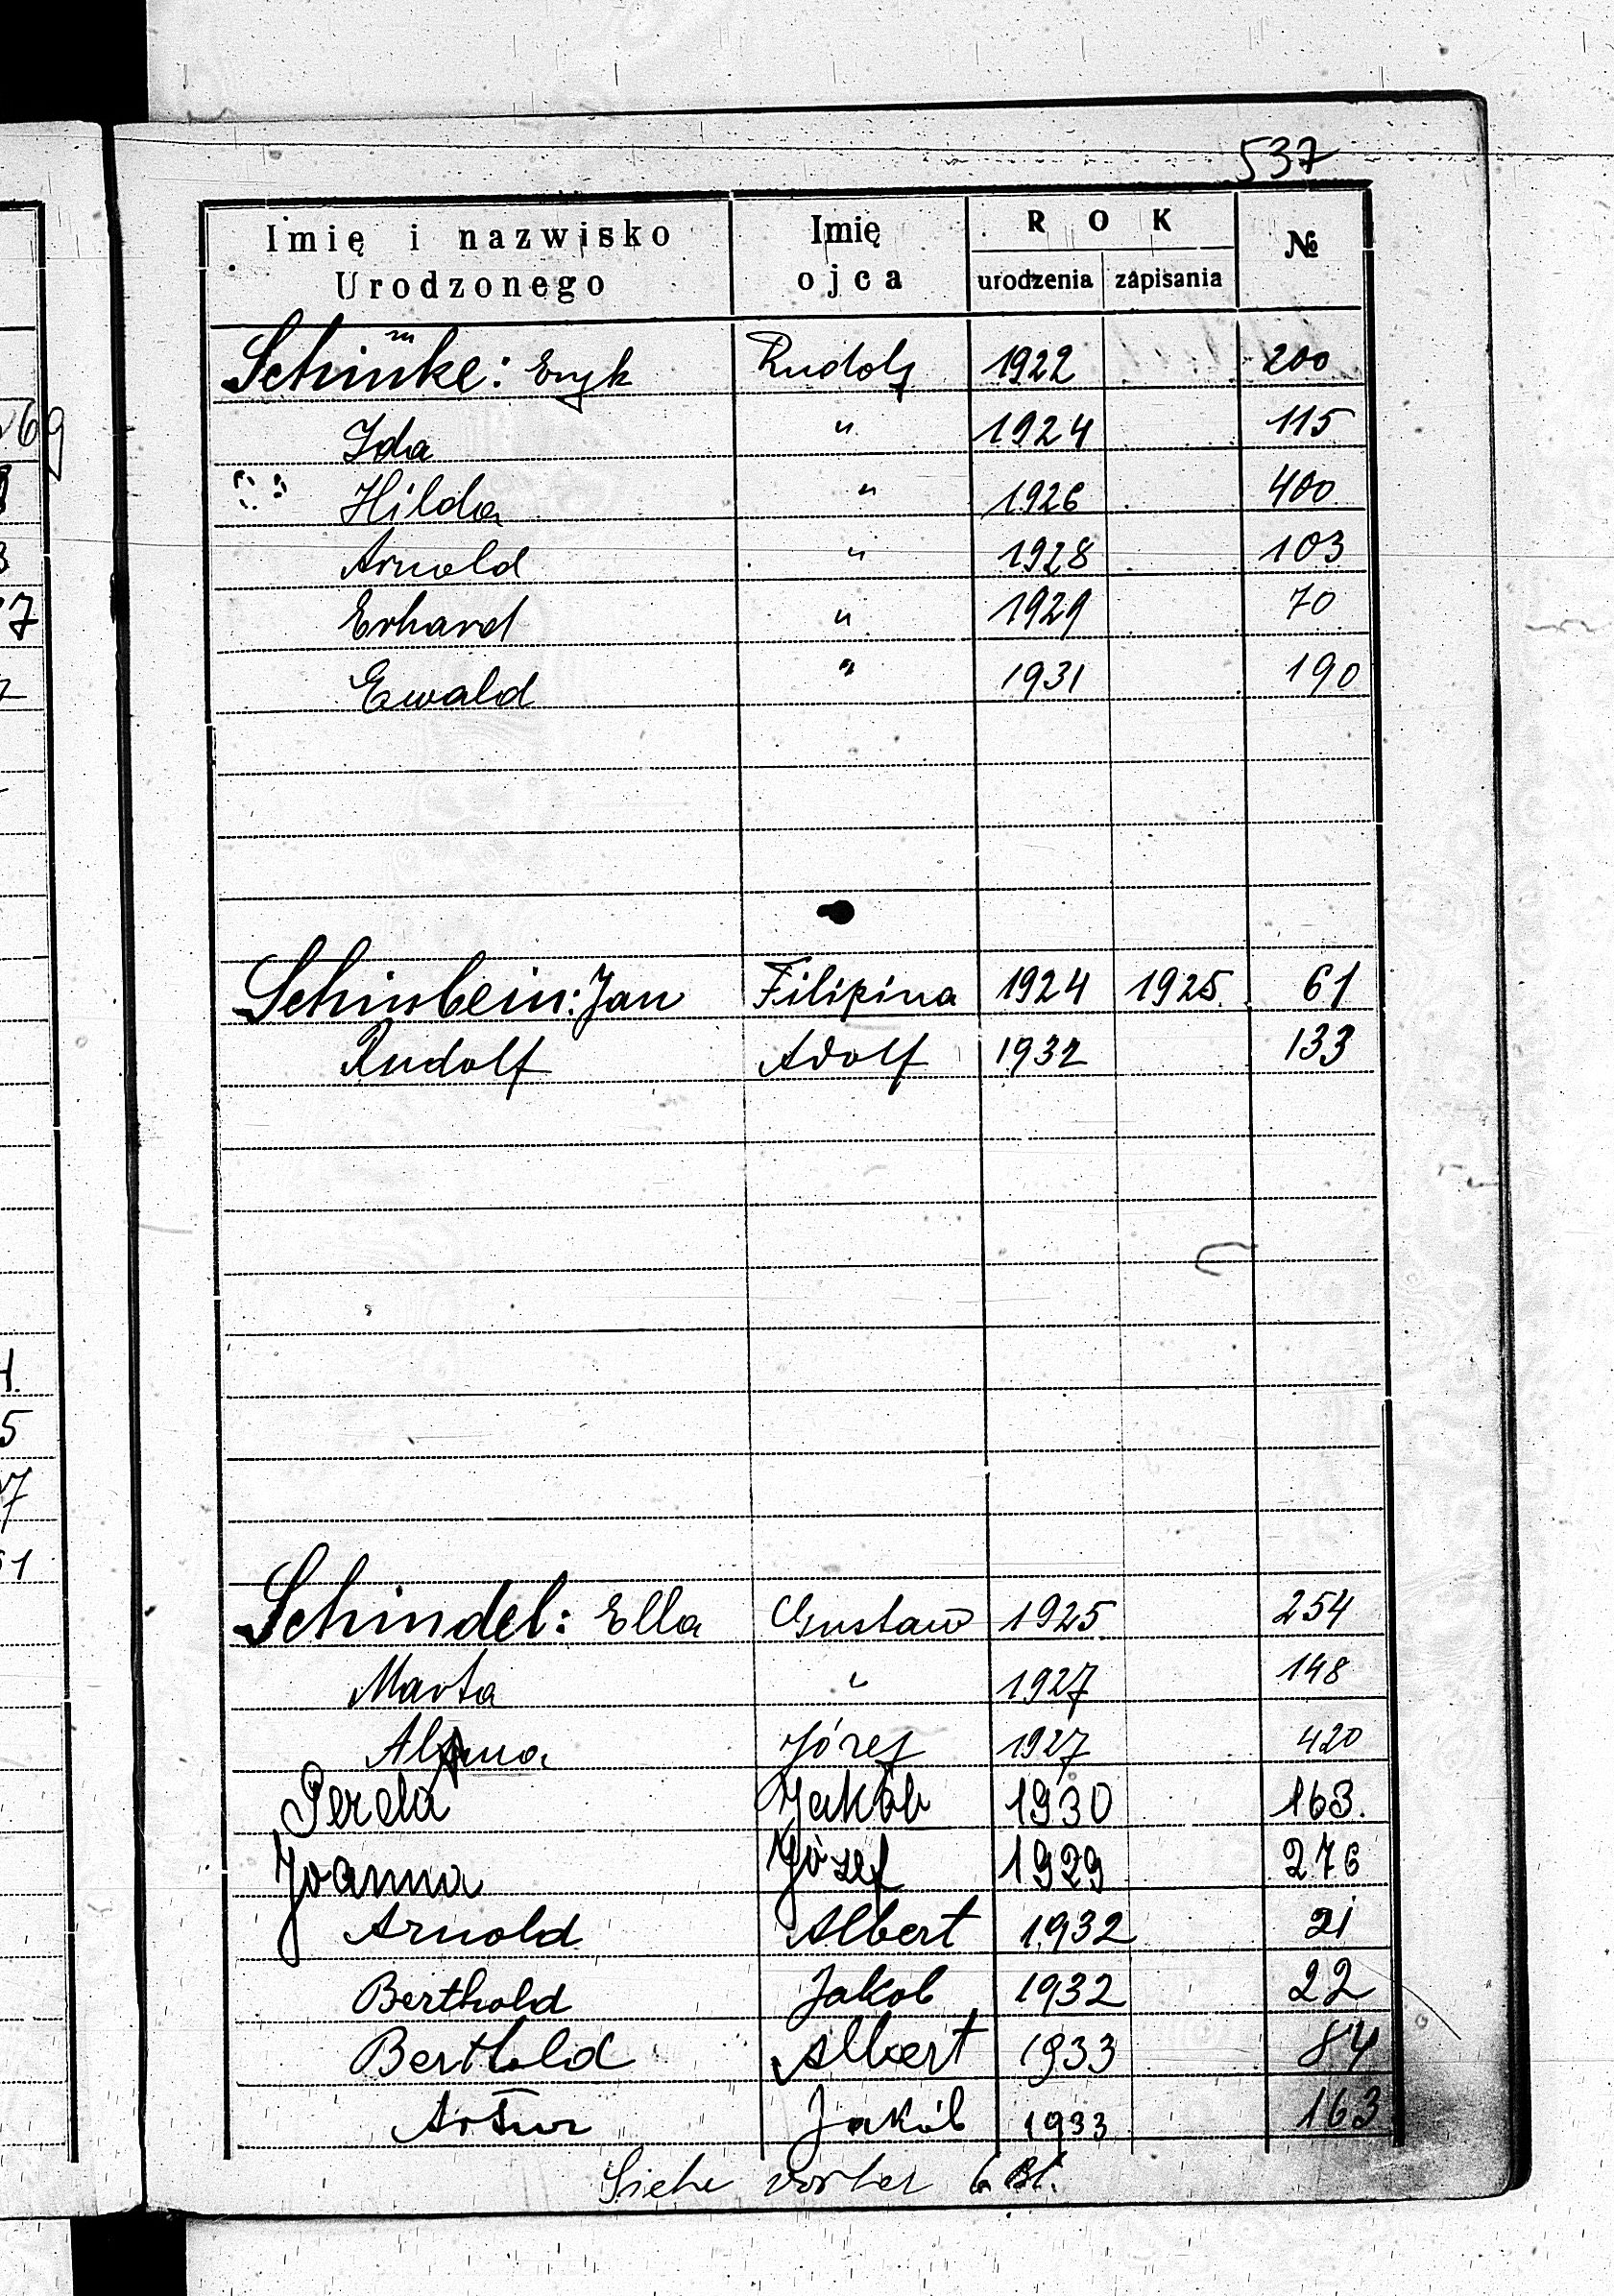 537
Imię i nazwisko Urodzonego Imię ojca ROK urodzenia zapisania №
Schinke: Eryk Rudolf 1922 200
Ida " 1924 115
Hilda " 1926 400
Arnold " 1928 103
Erhard " 1929 70
Ewald " 1931 190
Schinbein: Jan Filipina 1924 1925 61
Rudolf Adolf 1932 133
Schindel: Ella Gustaw 1925 254
Marta " 1927 148
Józef 1927 420
Jakób 1930 163.
Joanna Józef 1929 276
Arnold Albert 1932 21
Berthold Jakob 1932 22
Berthold Albert 1933 84
Artur Jakób 1933 163
Siehe vorher 6 Bl.